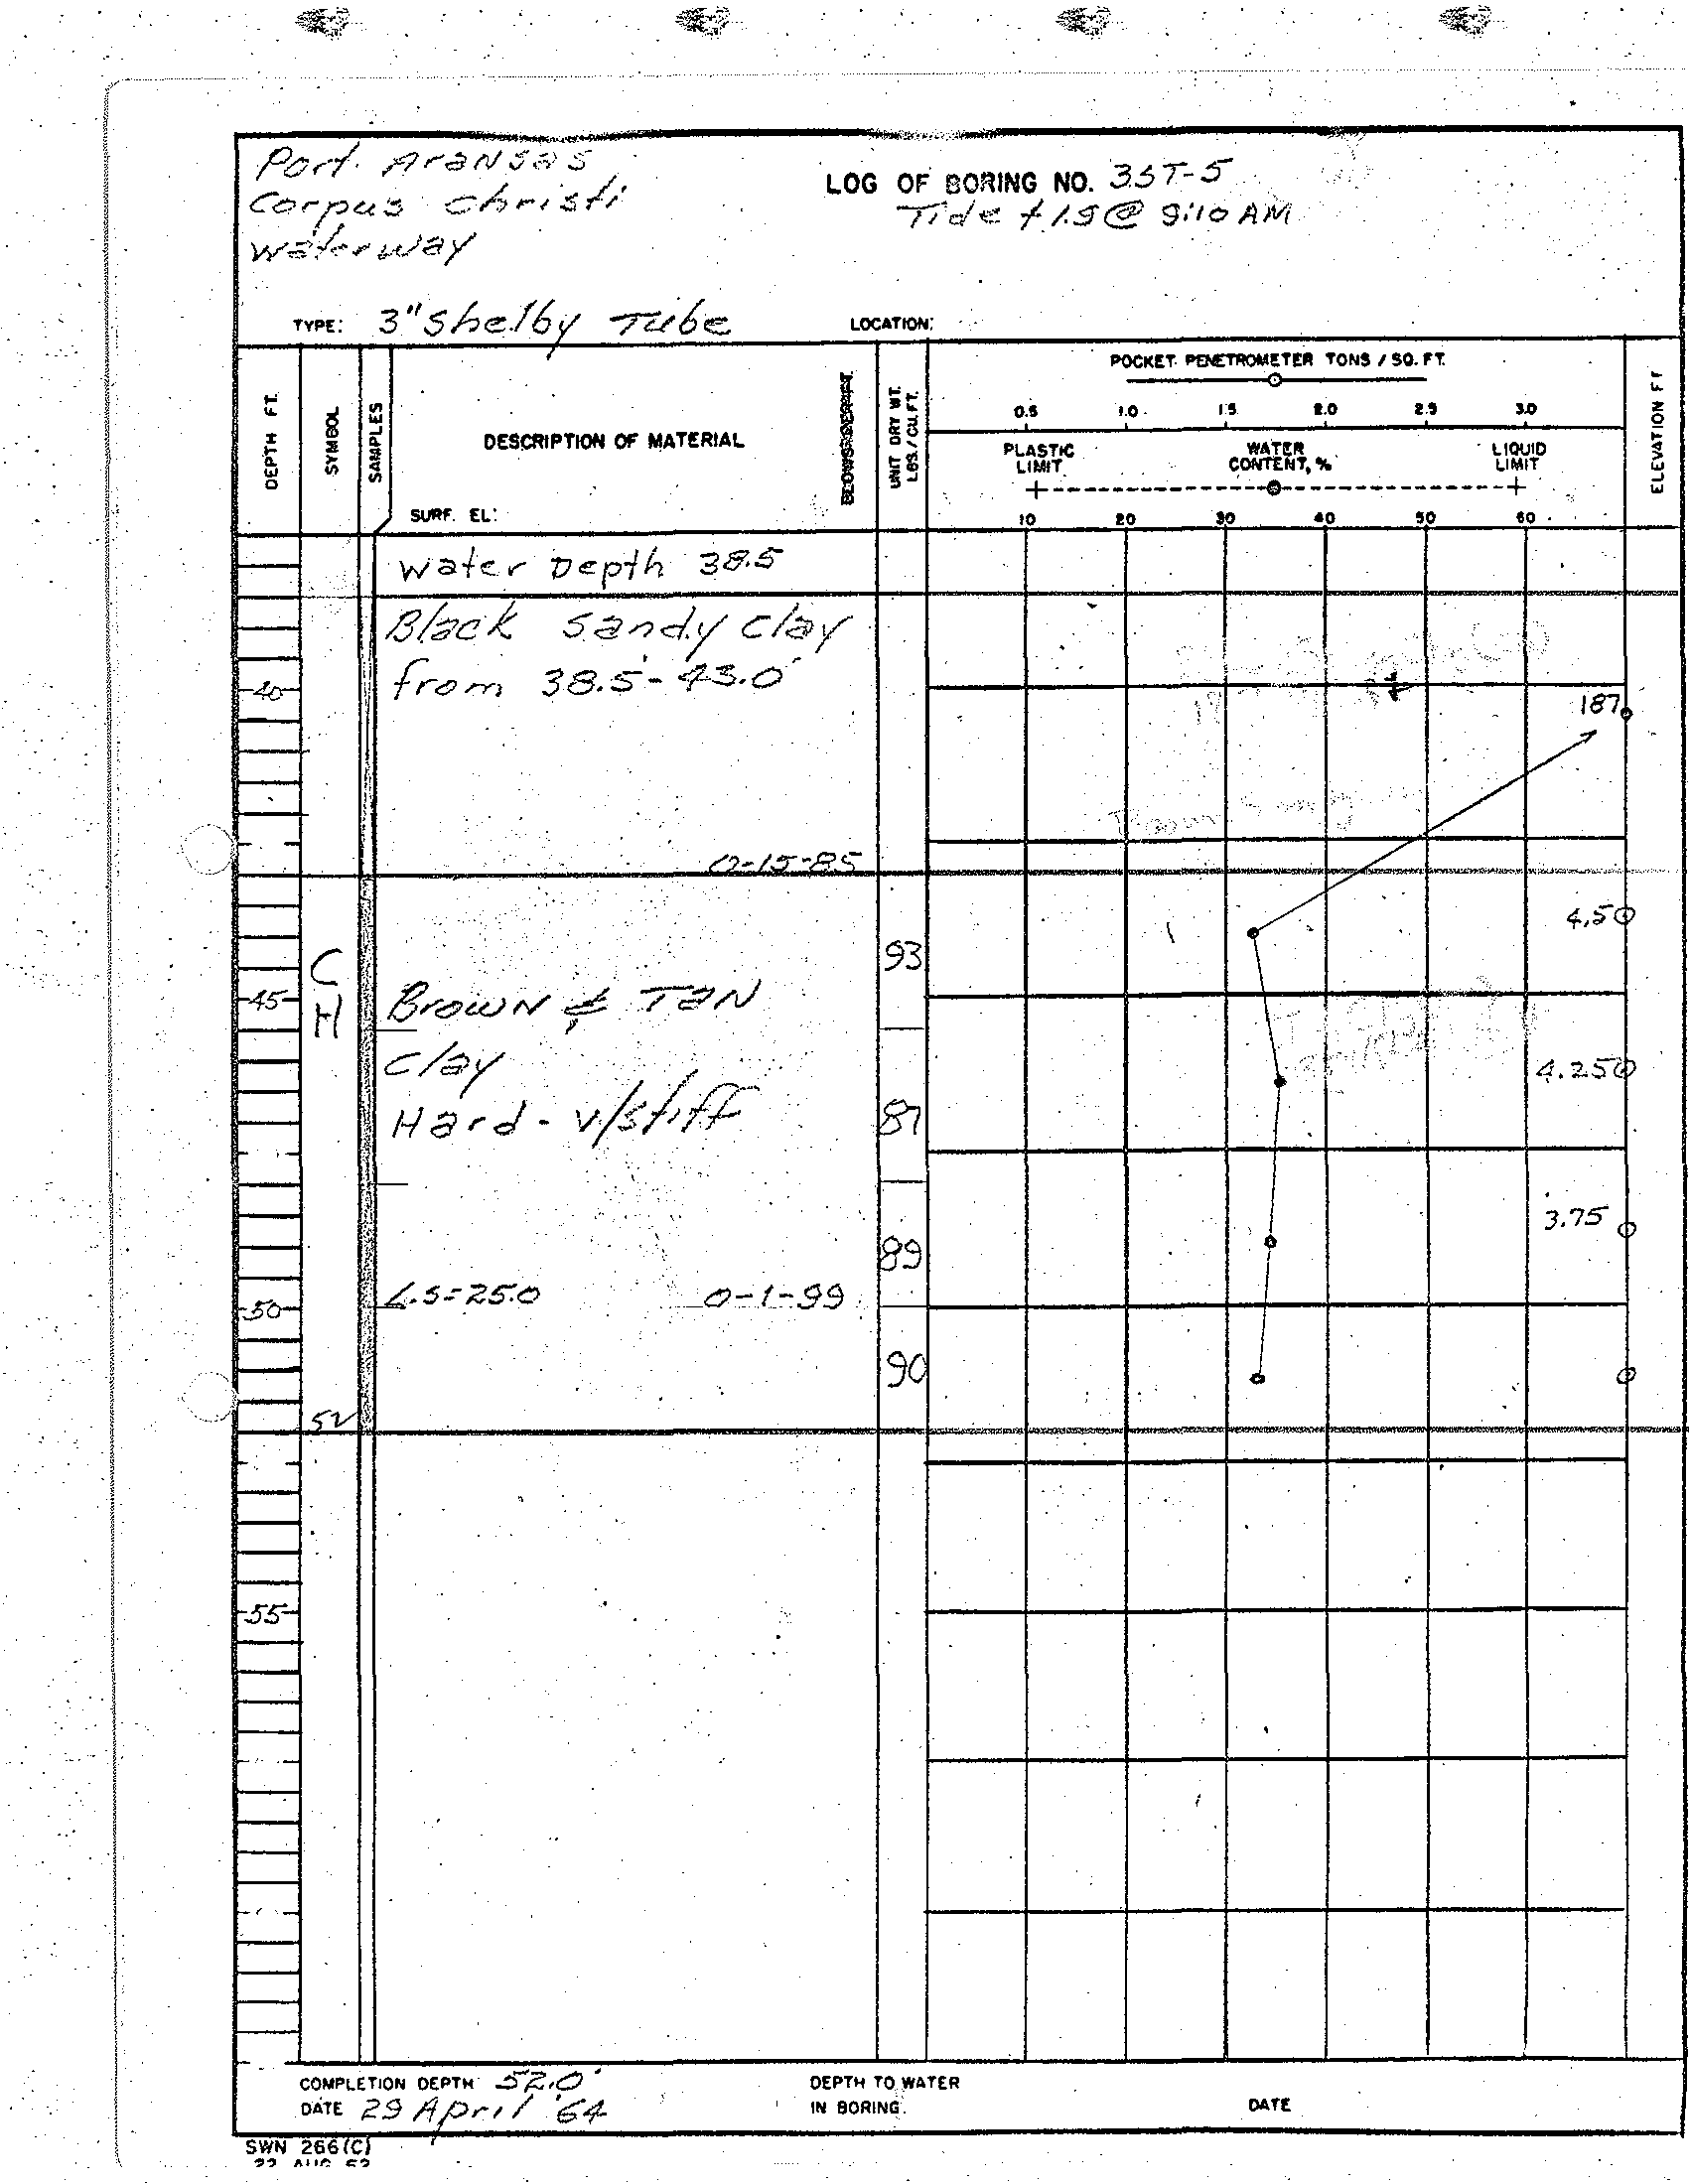 Port Aransas
Corpus Christi
Waterway
LOG OF BORING NO. 3ST-5
Tide +1.9 @ 9:10 AM
TYPE: 3" Shelby Tube
LOCATION:
DEPTH FT.
SYMBOL
SAMPLES
DESCRIPTION OF MATERIAL
SURF. EL:
BLOWS PER FT.
UNIT DRY WT.
LBS. / CU. FT.
POCKET PENETROMETER TONS / SQ. FT.
0.5 1.0 1.5 2.0 2.5 3.0
PLASTIC LIMIT
WATER CONTENT, %
LIQUID LIMIT
10 20 30 40 50 60
ELEVATION FT
Water Depth 38.5
Black Sandy Clay
from 38.5'-43.0'
40
187
0-15-85
4.5
93
C
H
45
Brown & Tan
Clay
Hard - v/stiff
4.25
87
3.75
89
L.S=25.0 0-1-99
50
90
52
55
COMPLETION DEPTH 52.0'
DATE 29 April '64
DEPTH TO WATER
IN BORING.
DATE
SWN 266(C)
22 AUG 52